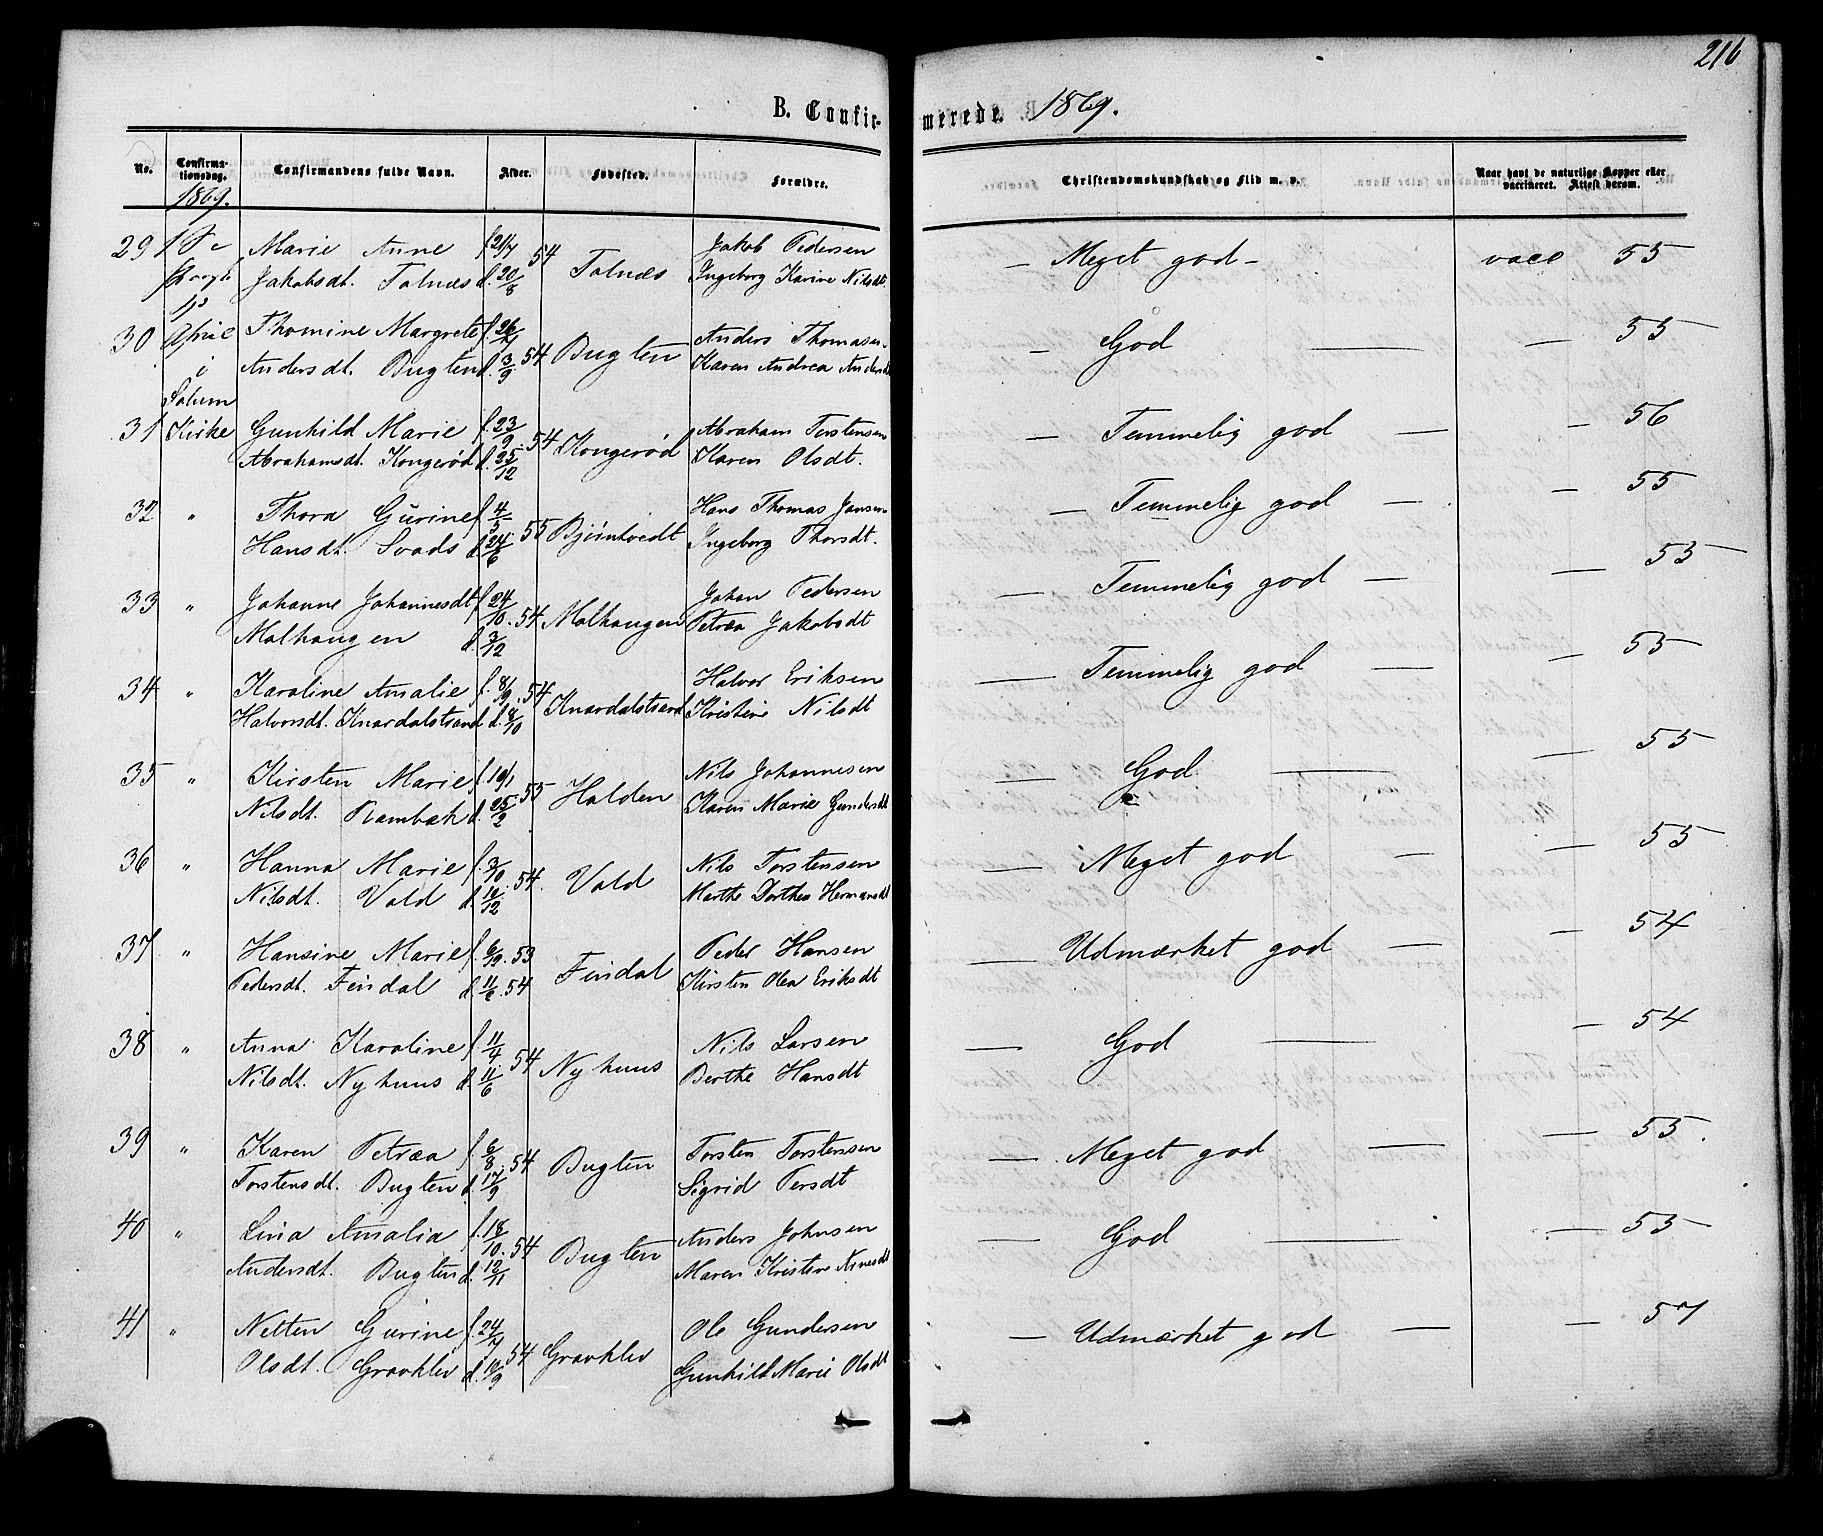 216
B. Confirmerede. 1869.
No. Confirmationsdag. Confirmandens fulde Navn. Alder. Fødested. Forældre. Christendomskundskab og Flid m. v. Naar havt de naturlige Kopper eller vaccineret. Attest derom.
1869.
29 Marie Anne f. 21/7 54 Tolnæs Jakob Pedersen — Meget god — vacc 55
Jakobsdt. Tolnæs d. 20/8 Ingeborg Karine Nilsdt.
30 April Thomine Margrete f. 26/7 54 Bugten Anders Thomasen — God — — 55
i Andersdt. Bugten d. 3/9 Karen Andrea Andersdt
Solum
31 Kirke Gunhild Marie f. 23/9 54 Kongerød Abraham Torstensen — Temmelig god — — 56
Abrahamsdt. Kongerød d. 25/12 Karen Olsdt.
32 " Thora Gurine f. 4/5 55 Bjørntvedt Hans Thomas Jansen — Temmelig god — — 55
Hansdt. Svads d. 24/6 Ingeborg Thorsdt.
33 " Johanne Johannesdt f. 24/10 54 Molhaugen Johan Pedersen — Temmelig god — — 55
Molhaugen d. 3/12 Petrea Jakobsdt
34 " Karoline Amalie f. 8/9 54 Knardalstrand Halvor Eriksen — Temmelig god — — 55
Halvorsdt. Knardalstrand d. 8/10 Kristine Nilsdt
35 " Kirsten Marie f. 19/1 55 Holden Nils Johannesen — God — — 55
Nilsdt. Rambæk d. 25/2 Karen Marie Gundersdt
36 " Hanna Marie f. 3/10 54. Vold Nils Torstensen — Meget god — — 55
Nilsdt. Vold d. 12/12 Marthe Dorthea Hermansdt
37 " Hansine Marie f. 6/12 53 Findal Peder Hansen — Udmærket god — — 54
Pedersdt. Findal d. 11/2 54 Kirsten Olea Eriksdt
38 " Anna Karoline f. 11/4 54 Nyhuus Nils Larsen — God — — 54
Nilsdt. Nyhuus d. 11/6 Berthe Hansdt
39 " Karen Petræa f. 6/8 54 Bugten Torsten Torstensen — Meget god — — 55.
Torstensdt. Bugten d. 17/9 Sigrid Persdt
40 " Lina Amalia f. 18/10 54 Bugten Anders Johnsen — God — — 55
Andersdt. Bugten d. 12/11 Maren Kristine
41 " Netten Gurine f. 24/7 54 Gravklev Ole Gundersen — Udmærket god — — 57
Olsdt. Gravklev d. 10/9 Gunhild Marie Olsdt